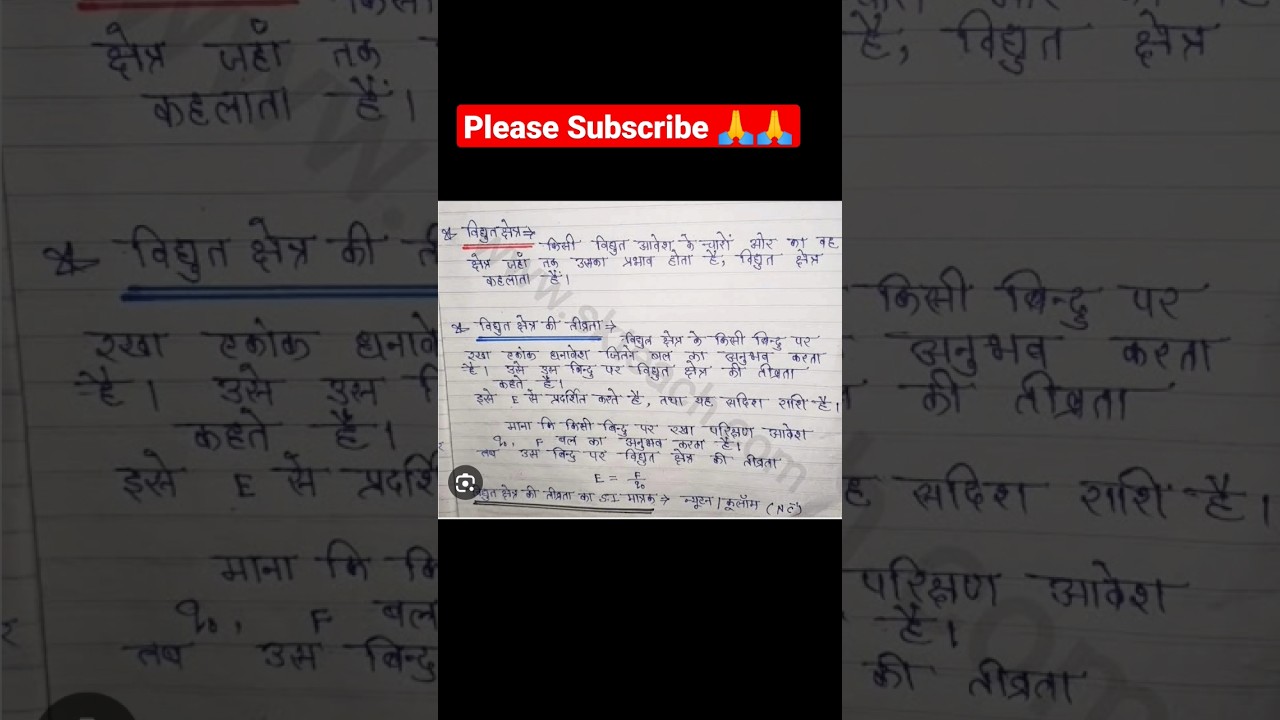 Please Subscribe 🙏🙏
विद्युत क्षेत्र ⇒ किसी विद्युत आवेश के चारों ओर का वह
क्षेत्र जहाँ तक उसका प्रभाव होता है, विद्युत क्षेत्र
कहलाता है।
विद्युत क्षेत्र की तीव्रता → विद्युत क्षेत्र के किसी बिन्दु पर
रखा एकांक धनावेश जितने बल का अनुभव करता
है। उसे उस बिन्दु पर विद्युत क्षेत्र की तीव्रता
कहते है।
इसे E से प्रदर्शित करते है, तथा यह सदिश राशि है।
माना कि किसी बिन्दु पर रखा परिक्षण आवेश
q₀, F बल का अनुभव करता है।
तब उस बिन्दु पर विद्युत क्षेत्र की तीव्रता
E = F/q₀
विद्युत क्षेत्र की तीव्रता का S.I मात्रक → न्यूटन/कूलॉम (NC⁻¹)